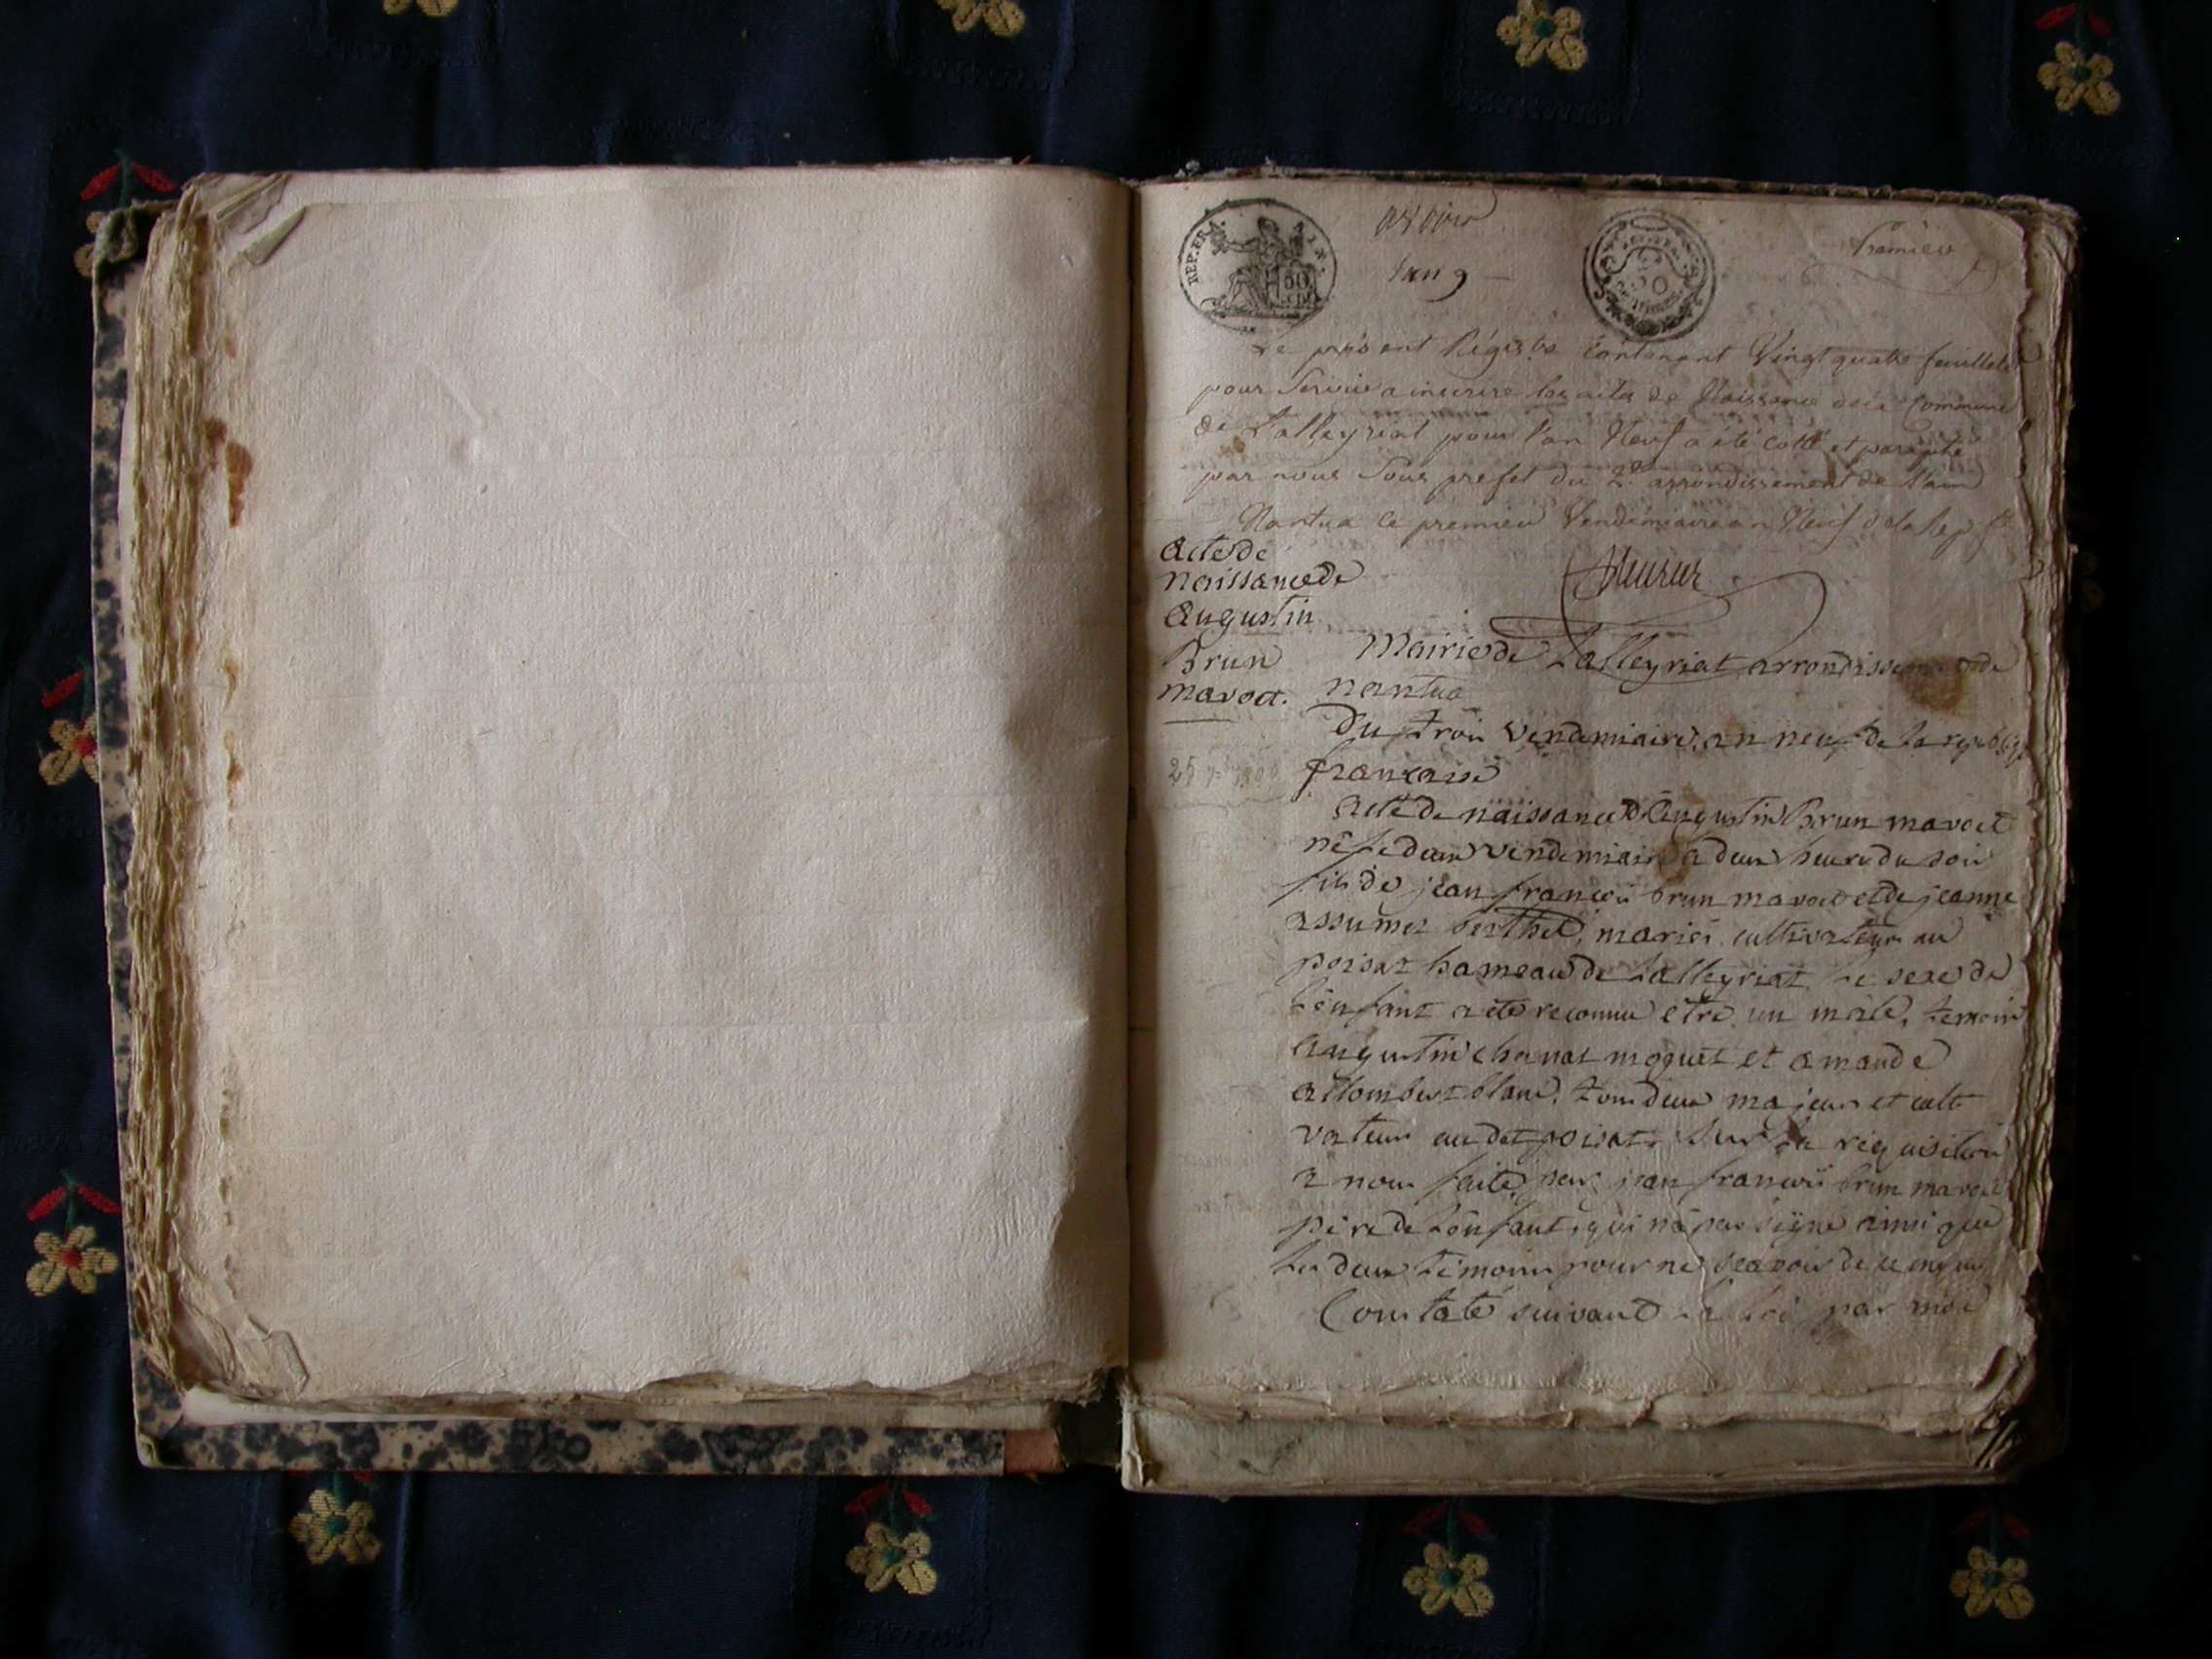 REP. FR.
50
Premier
l'an 9
Le présent Régistre Contenant Vingt quatre feuillets
pour Servir a inscrire les actes de Naissance de la Commune
de Lalleyriat pour l'an Neuf a été Cotté et paraphé
par nous Sous prefet du 2e arrondissement de l'ain
Nantua le premier Vendémiaire an Neuf de la Rep
acte de
naissance de
augustin
Brun
mavoct.
Mairie de Lalleyriat arrondissement de
nantua
Du trois vendemiaire, an neuf de la republiq
francaise
acte de naissance d'augustin Brun mavoct
né le deux vendemiaire a deux heure du soir
fils de jean francois brun mavoct et de jeanne
berthet, mariés, cultivateurs au
poisat hameau de Lalleyriat le sexe de
l'enfant a eté reconnu etre un mâle, temoins
augustin chanat moquet et amande
allombert blanc, tous deux majeurs et culti
vateurs au dit poisat, Sur la requisition
a nous faite, par jean francois brun mavoct
pere de l'enfant, qui n'a pas signé ainsi que
les deux temoins pour ne sçavoir de ce enquis
Constaté suivant la loi par moi